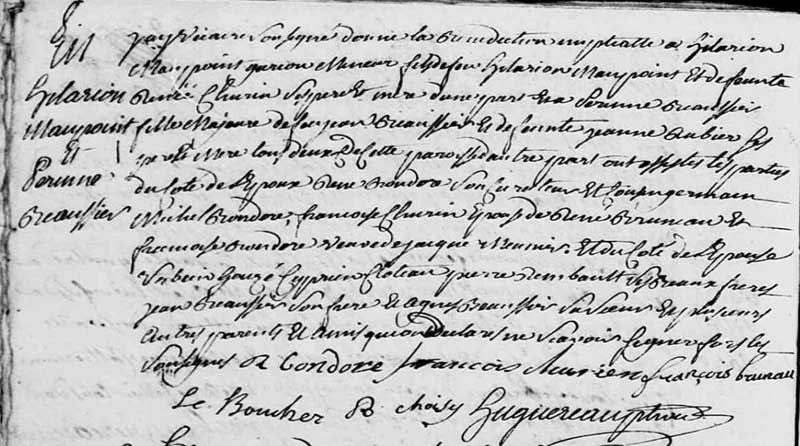 Hilarion
Maupoint
Et
Perinne
Beaussier
Vicaire Soussigné donné la Benediction nuptialle a hilarion
Maupoint garcon Mineur fils de feu hilarion Maupoint Et de feunte
Renée Cheurin Ses pere Et mere dune part Et a Perinne Beaussier
fille Majeure de feu jean Beaussier Et de feunte jeanne Aubier Ses
pere Et Mere tous deux de Cette paroisse dautre part ont assistes les parties
du Coté de L'Epoux René Rondore Son Curateur Et Cousin germain
Michel Rondore, francoise Cheurin Epouse de René Bruneau Et
francoise Rondore veuve de jacque Meunier, Et du Coté de L'Epouse
Cyprien pierre Ses Beaux freres
jean Beaussier Son frere Et agnes Beaussier Sa Sœur Et plusieurs
Autres parents Et Amis qui ont declarés ne Scavoir Signer fors les
Soussignés R Rondore francois francois
Le Boucher Choisy huguereau